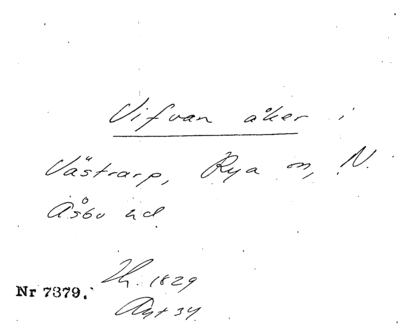 Vifvan åker i
Västrarp, Rya sn, N.
Åsbo hd
1829
Nr 7379.
34